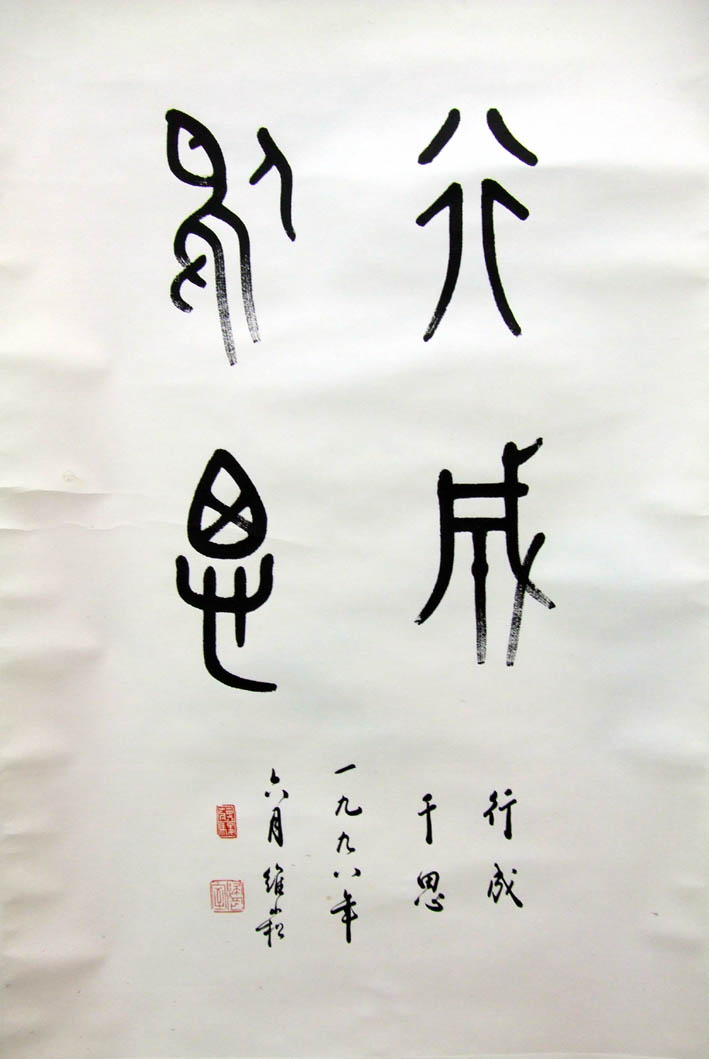 行成
於思
行成
于思
一九九八年
六月 維崧